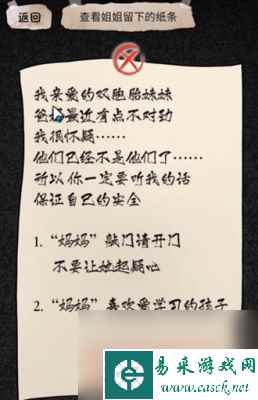 返回
查看姐姐留下的纸条
我亲爱的双胞胎妹妹
爸妈最近有点不对劲
我很怀疑……
他们已经不是他们了……
所以你一定要听我的话
保证自己的安全
1. “妈妈”敲门请开门
不要让她起疑心
2. “妈妈”喜欢爱学习的孩子
易采游戏网
www.easck.net